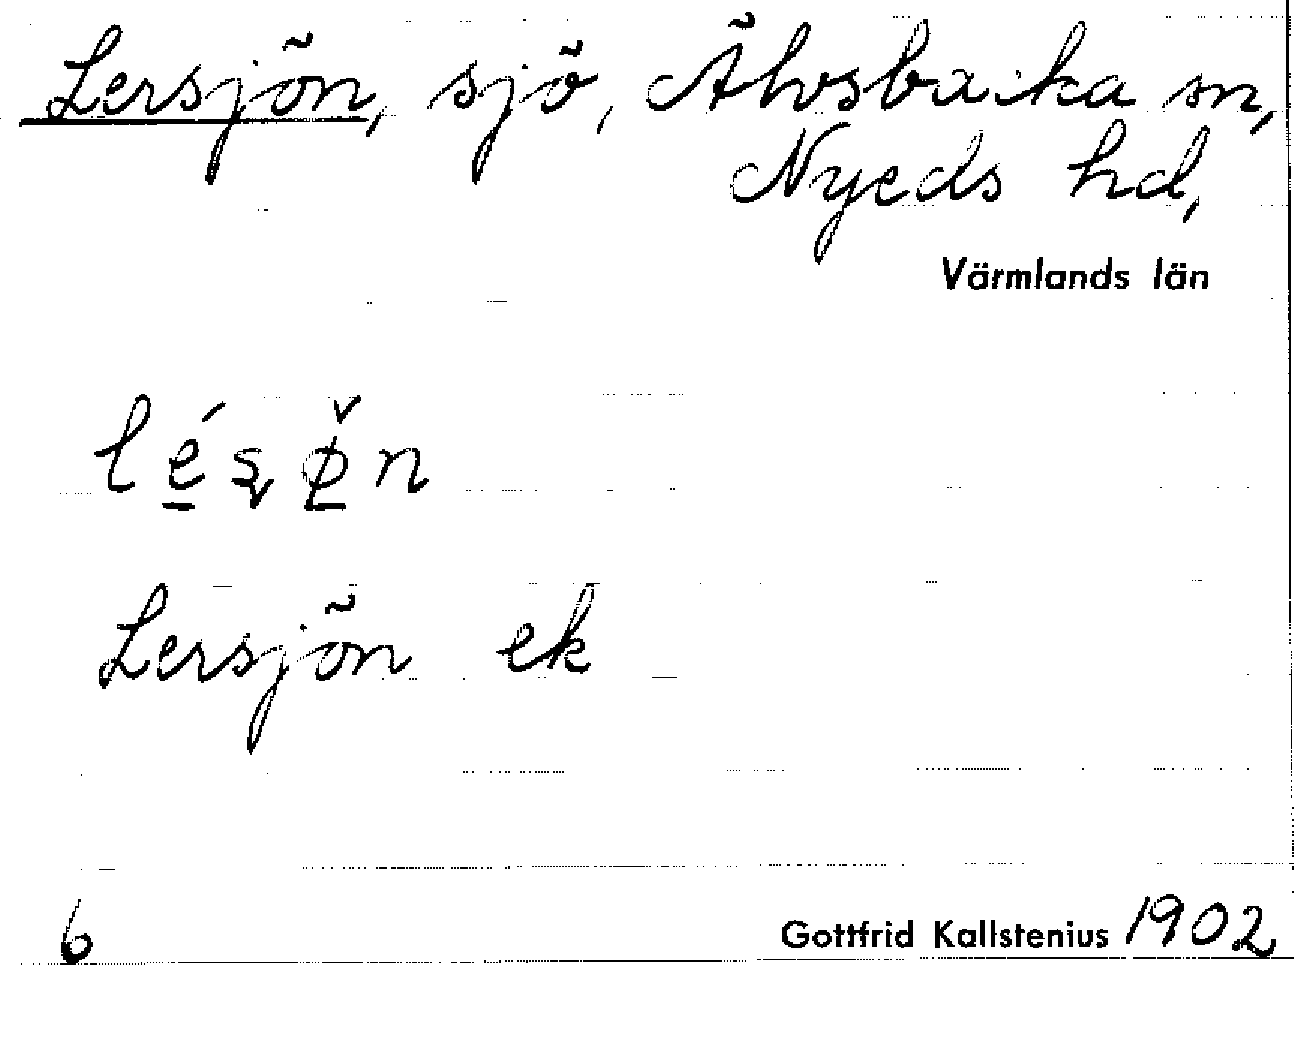 Lersjön, sjö, Älvsbacka sn,
Nyeds hd,
Värmlands län
lé̲ʂø̲̌n
Lersjön ek
6 Gottfrid Kallstenius 1902